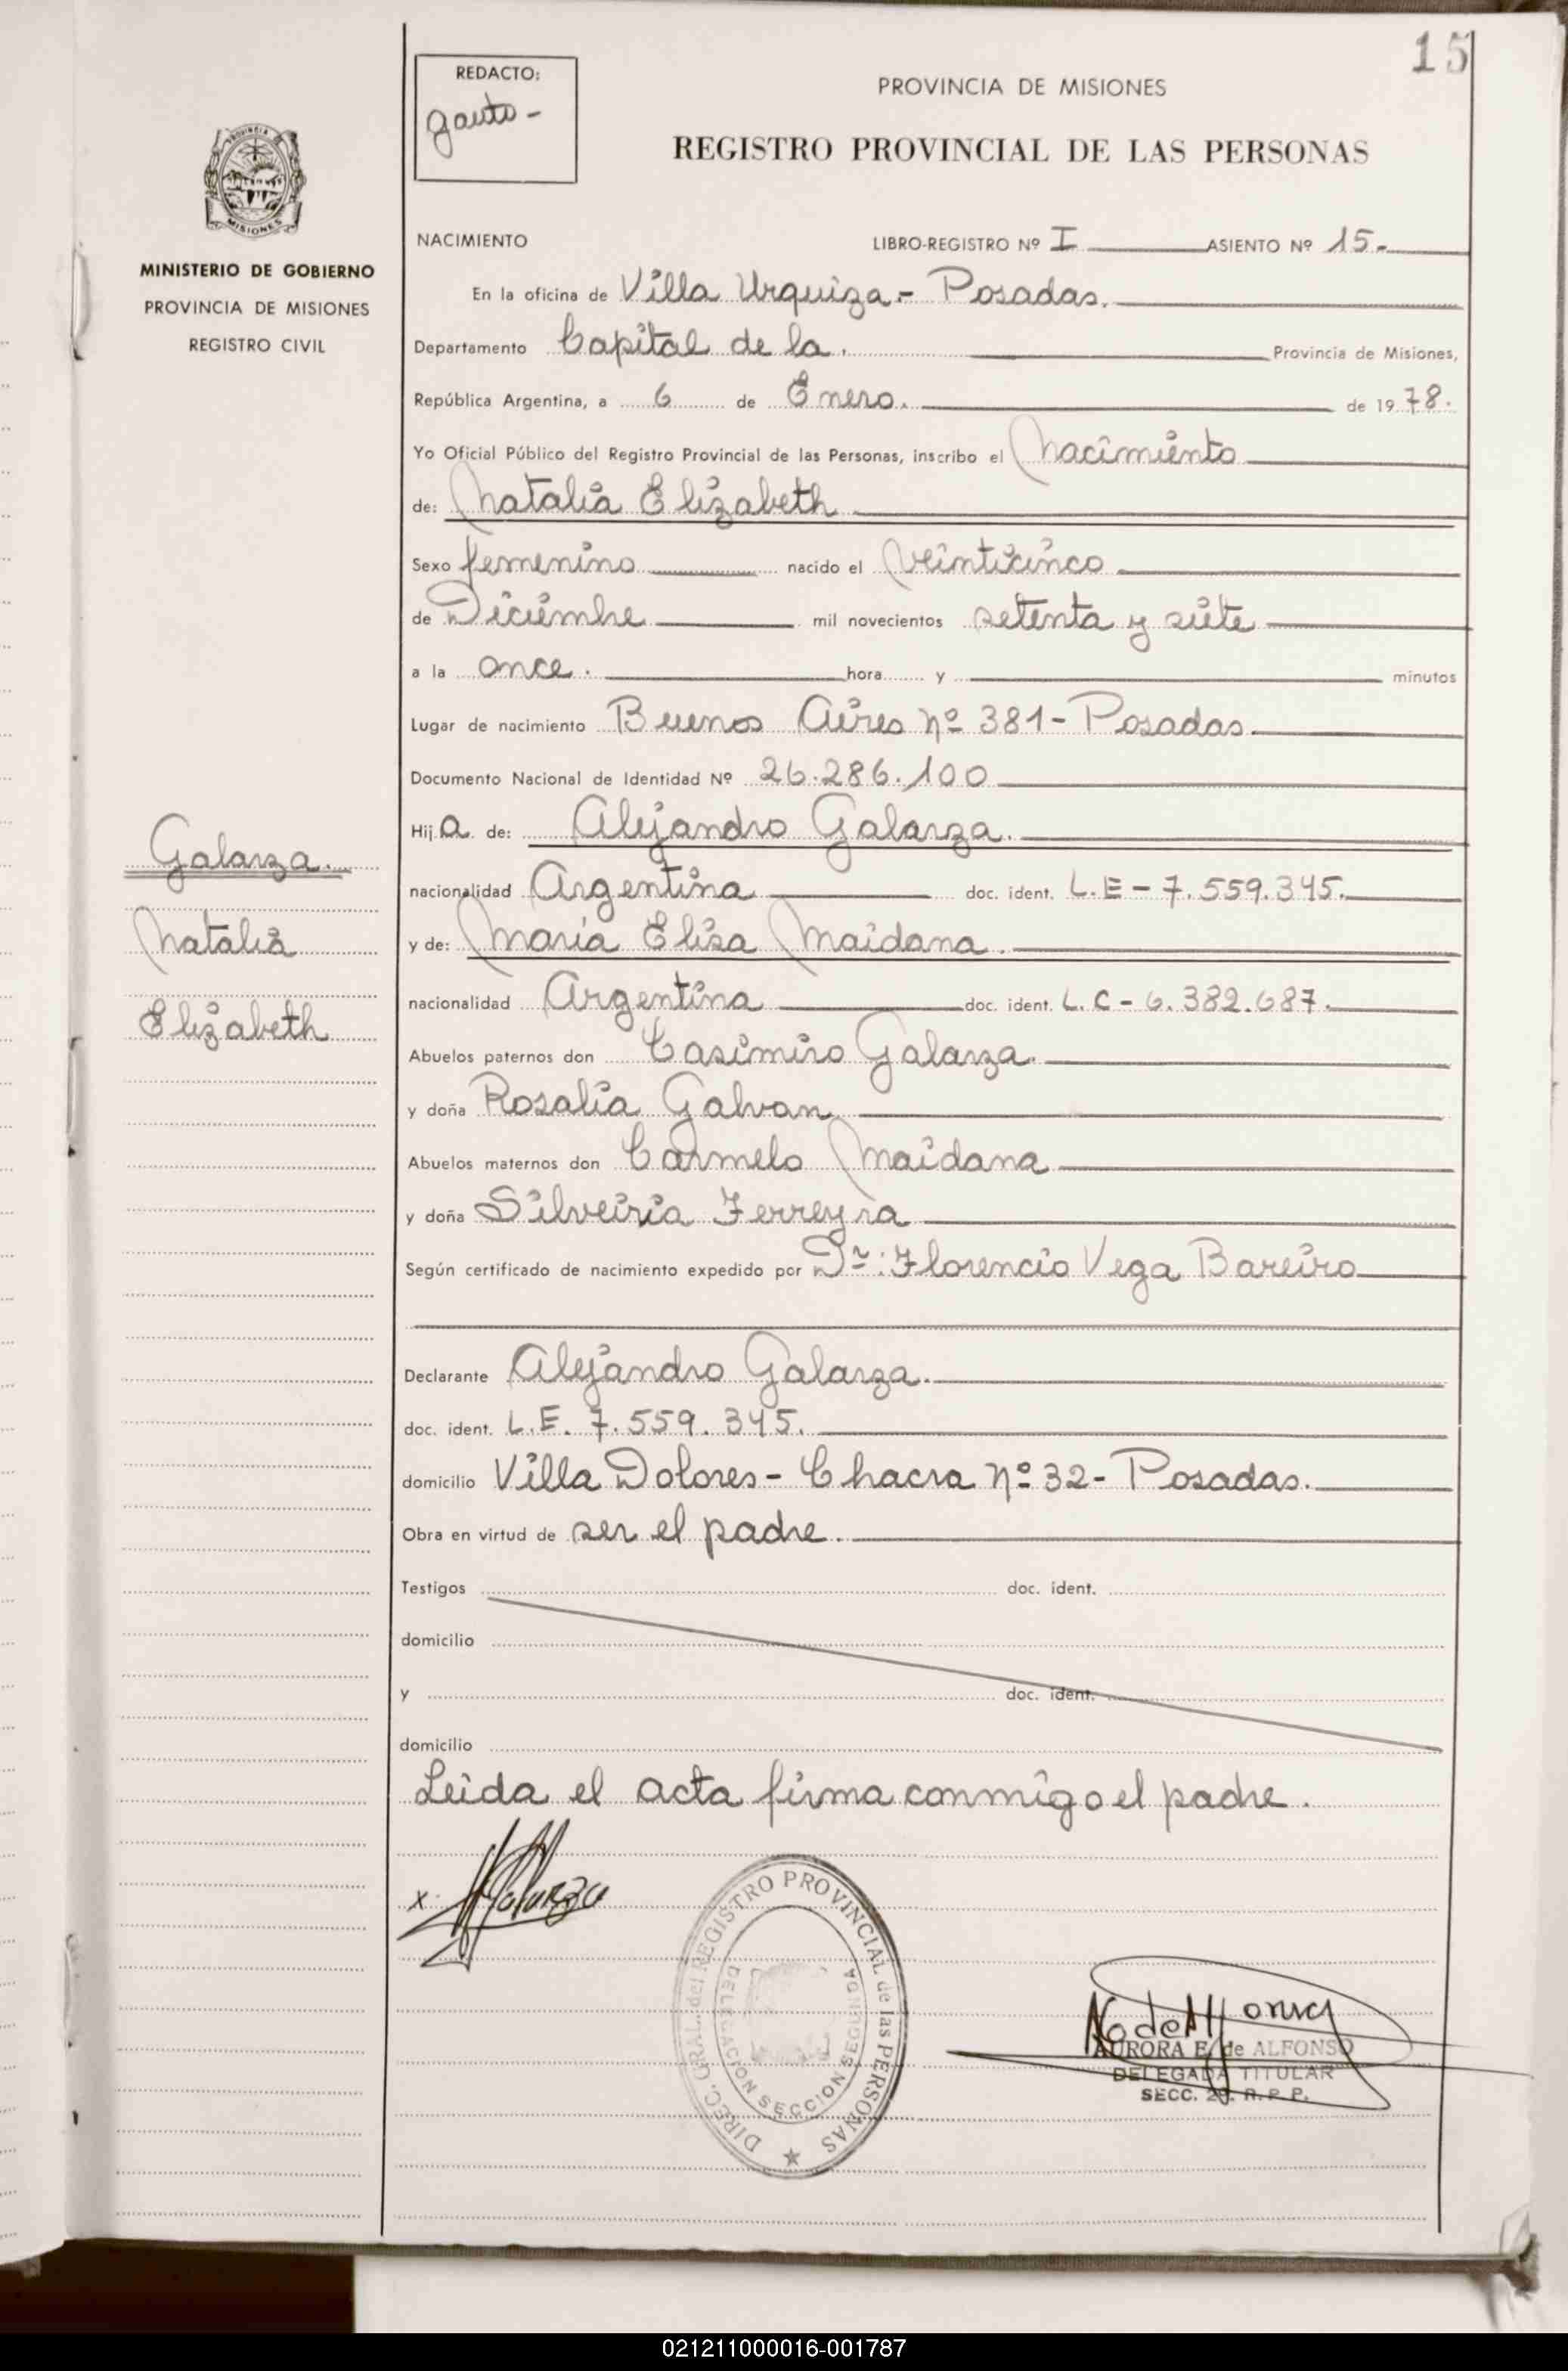 15
REDACTO:
gauto-
PROVINCIA DE MISIONES
REGISTRO PROVINCIAL DE LAS PERSONAS
PROVINCIA DE
MISIONES
MINISTERIO DE GOBIERNO
PROVINCIA DE MISIONES
REGISTRO CIVIL
Galarza.
Natalia
Elizabeth
NACIMIENTO LIBRO-REGISTRO Nº I ASIENTO Nº 15.-
En la oficina de Villa Urquiza.- Posadas.
Departamento Capital de la. Provincia de Misiones,
República Argentina, a 6 de Enero. de 1978.
Yo Oficial Público del Registro Provincial de las Personas, inscribo el Nacimiento
de: Natalia Elizabeth
Sexo femenino nacido el Veinticinco
de Diciembre mil novecientos setenta y siete
a la once. hora y minutos
Lugar de nacimiento Buenos Aires nº 381- Posadas.
Documento Nacional de Identidad Nº 26.286.100
Hija de: Alejandro Galarza.
nacionalidad Argentina doc. ident. L.E - 7.559.345.
y de: Maria Elisa Maidana.
nacionalidad Argentina doc. ident. L.C - 6.382.687.
Abuelos paternos don Casimiro Galarza.
y doña Rosalia Galvan
Abuelos maternos don Carmelo Maidana
y doña Silveiria Ferreyra
Según certificado de nacimiento expedido por Dr: Florencio Vega Bareiro
Declarante Alejandro Galarza.
doc. ident. L.E. 7.559.345.
domicilio Villa Dolores- Chacra nº 32- Posadas.
Obra en virtud de ser el padre.
Testigos doc. ident.
domicilio
y doc. ident.
domicilio
Leida el acta firma conmigo el padre.
x. AGalarza
DIREC. GRAL. del REGISTRO PROVINCIAL de las PERSONAS
DELEGACION SECCION SEGUNDA
AURORA E. de ALFONSO
DELEGADA TITULAR
SECC. 2ª. R. P. P.
021211000016-001787